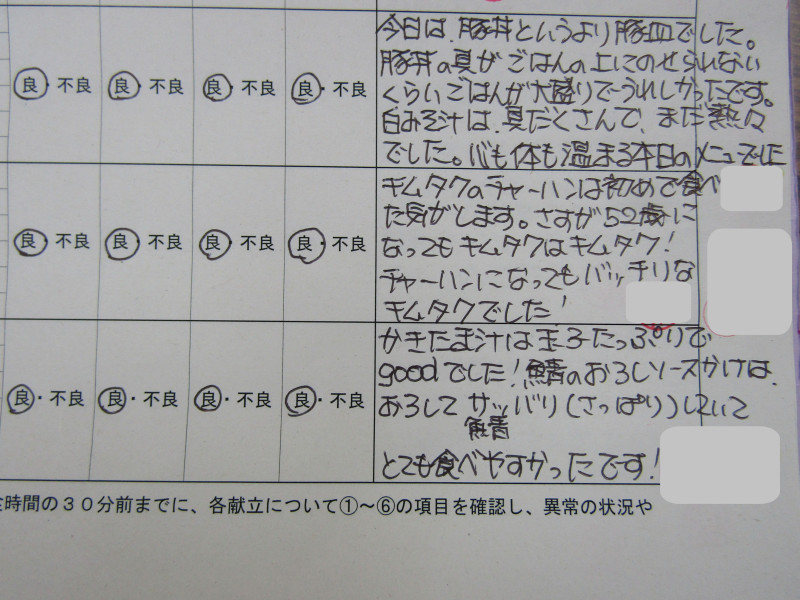 良・不良 良・不良 良・不良 良・不良
今日は、豚丼というより豚皿でした。
豚丼の具がごはんの上にのせられない
くらいごはんが大盛りでうれしかったです。
白みそ汁は、具だくさんで、まだ熱々
でした。心も体も温まる本日のメニューでした
良・不良 良・不良 良・不良 良・不良
キムタクのチャーハンは初めて食べ
た気がします。さすが52歳に
なってもキムタクはキムタク!
チャーハンになってもバッチリな
キムタクでした!
良・不良 良・不良 良・不良 良・不良
かきたま汁は玉子たっぷりで
goodでした!鯖のおろしソースかけは、
おろしてサッバリ(さっぱり)していて
鯖
とても食べやすかったです!
時間の30分前までに、各献立について①~⑥の項目を確認し、異常の状況や